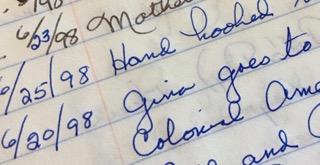 /98
6/23/98 Mothe
6/25/98 Hand hooked
6/20/98 Gina goes to
Colonial Ame
and